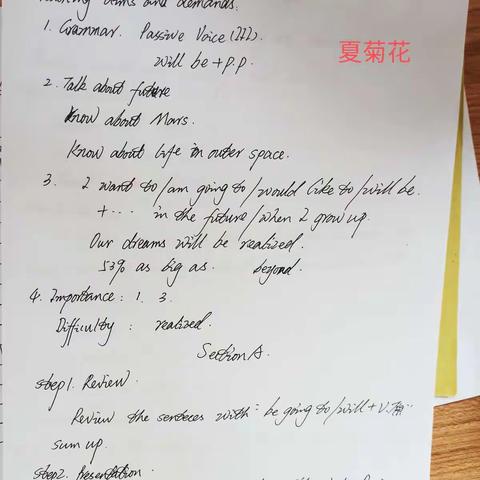 aims and demands.
1. Grammar. Passive Voice (III).
will be + p.p.
夏菊花
2. Talk about future
Know about Mars.
Know about life in outer space.
3. I want to/am going to/would like to/will be.
+ ... in the future/when I grow up.
Our dreams will be realized.
53% as big as. beyond.
4. Importance: 1. 3.
Difficulty: realized.
Section A.
step1. Review.
Review the senteces with: be going to/will + V.原...
sum up.
step2. Presentation.